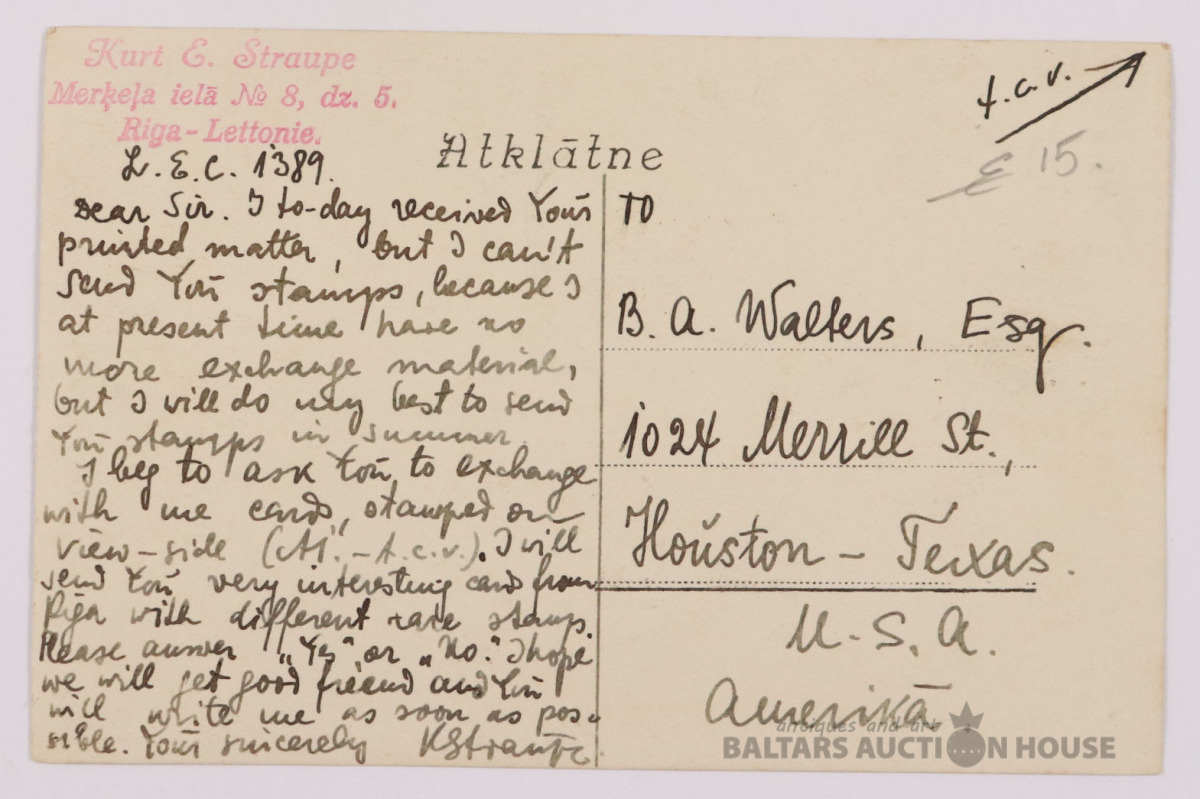 Kurt E. Straupe
Merķeļa ielā № 8, dz. 5.
Riga - Lettonie.
L. E. C. 1389.
Atklātne
t.c.v.
£ 15.
Dear Sir. I to-day received Your
printed matter, but I can't
send You stamps, because I
at present time have no
more exchange material,
but I will do my best to send
You stamps in summer.
I beg to ask You to exchange
with me cards, stamped on
view-side (- t.c.v.). I will
send You very interesting cards from
Riga with different rare stamps.
Please answer „Yes" or „No." I hope
we will get good friend and You
will write me as soon as pos-
sible. Your sincerely KStraupe.
TO
B. A. Walters, Esq.
1024 Merrill St.,
Houston - Texas.
U. S. A.
Amerikā
antiques and art
BALTARS AUCTION HOUSE